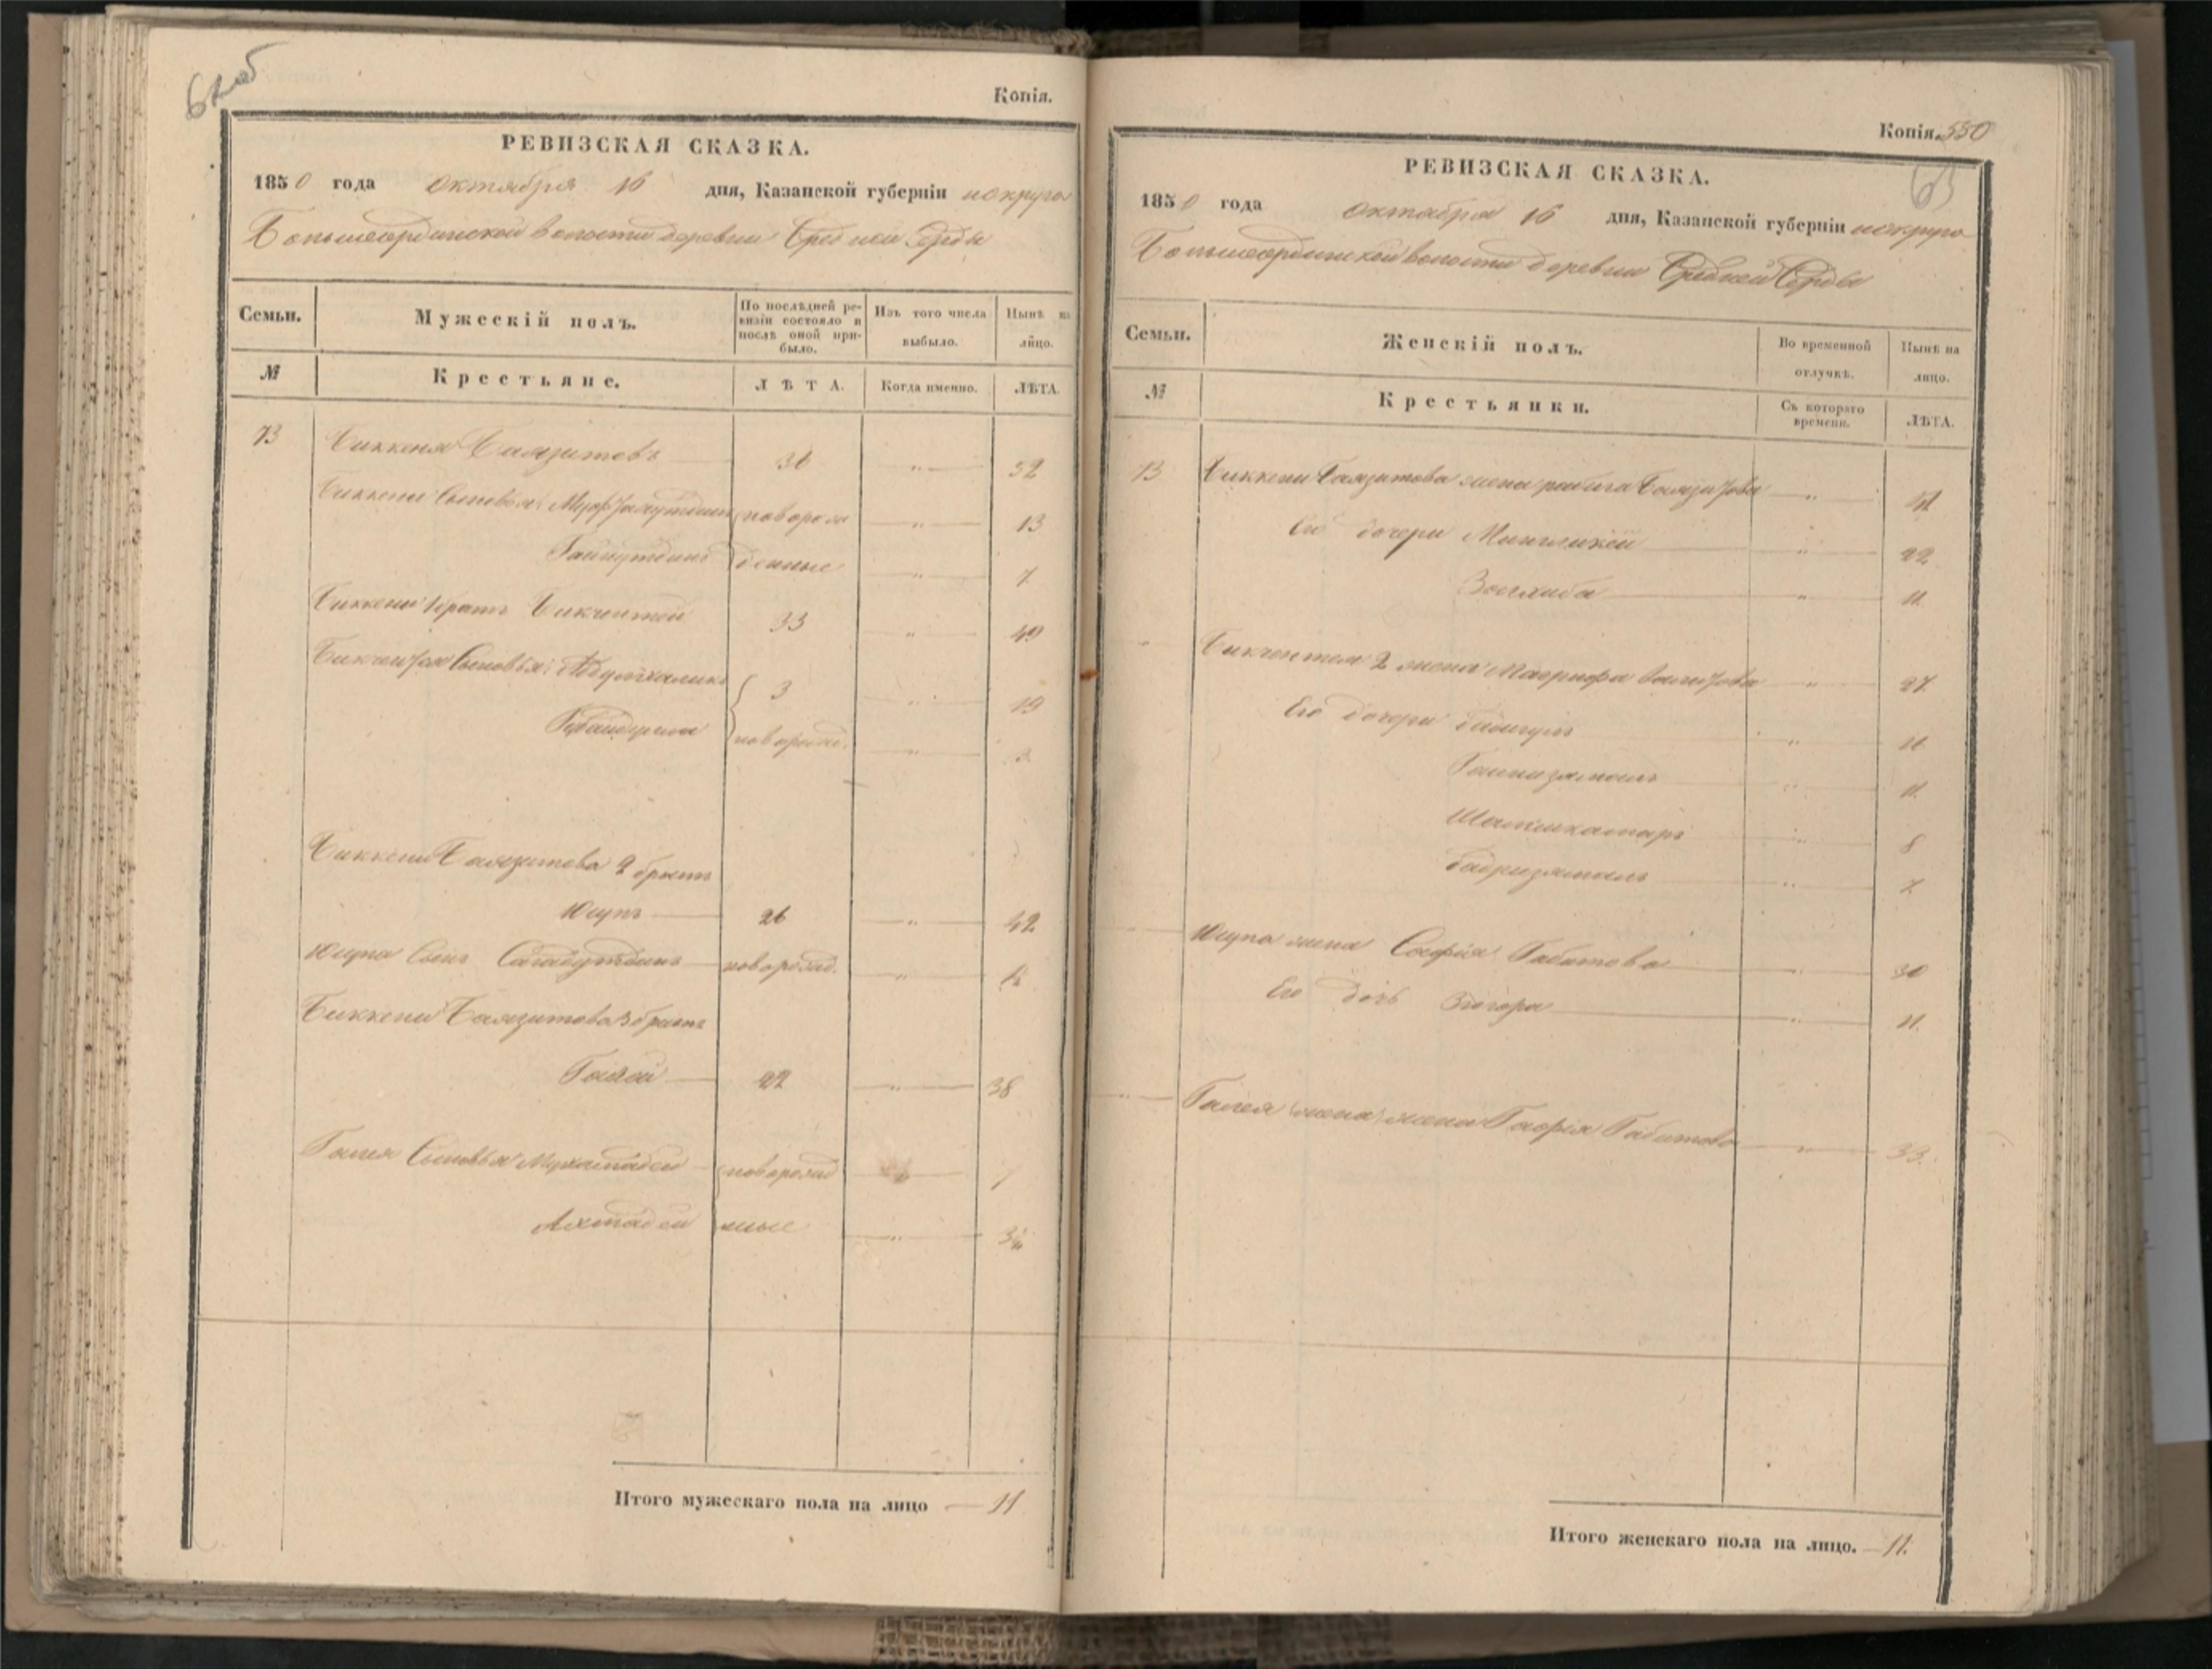 62 об
Копія.
РЕВИЗСКАЯ СКАЗКА.
1850 года октября 16 дня, Казанской губерніи и округа
Большесердинской волости деревни Средней Серды
Семьи.
Мужескій полъ.
По послѣдней ревизіи состояло и послѣ оной прибыло.
Изъ того числа выбыло.
Нынѣ на лицо.
№
Крестьяне.
ЛѢТА.
Когда именно.
ЛѢТА.
73 Биккеня Баязитовъ 36 „ 52
Биккени Сыновья: новорож „ 13
Гайнутдинъ денные „ 7
Биккени 1 братъ Бикчентей 33 „ 49
Бикчентея Сыновья: Абдулхаликъ 3 „ 19
новорожд. „ 3
Биккени Баязитова 2 братъ
Юсупъ 26 „ 42
Юсупа Сынъ новорожд. „
Биккени Баязитова 3 братъ
Галей 22 „ 38
Галея Сыновья Мухаматдей новорожд „ 7
Ахмадей ные „
Итого мужескаго пола на лицо — 11
Копія. 550
63
РЕВИЗСКАЯ СКАЗКА.
1850 года октября 16 дня, Казанской губерніи и округа
Большесердинской волости деревни Средней Серды
Семьи.
Женскій полъ.
Во временной отлучкѣ.
Нынѣ на лицо.
№
Крестьянки.
Съ котораго времени.
ЛѢТА.
73 Биккени Баязитова жена „
Его дочери „ 22
Зюлхиба „ 11
Бикчентея 2 жена Магрифа „ 27
Его дочери „
„ 11
Шамсикамаръ „ 8
Бадризямалъ „ 7
Юсупа жена Софія Габитова „ 30
Его дочь Зюгора „ 11
Галея жена жена Гафія Габитова „ 33
Итого женскаго пола на лицо. — 11.